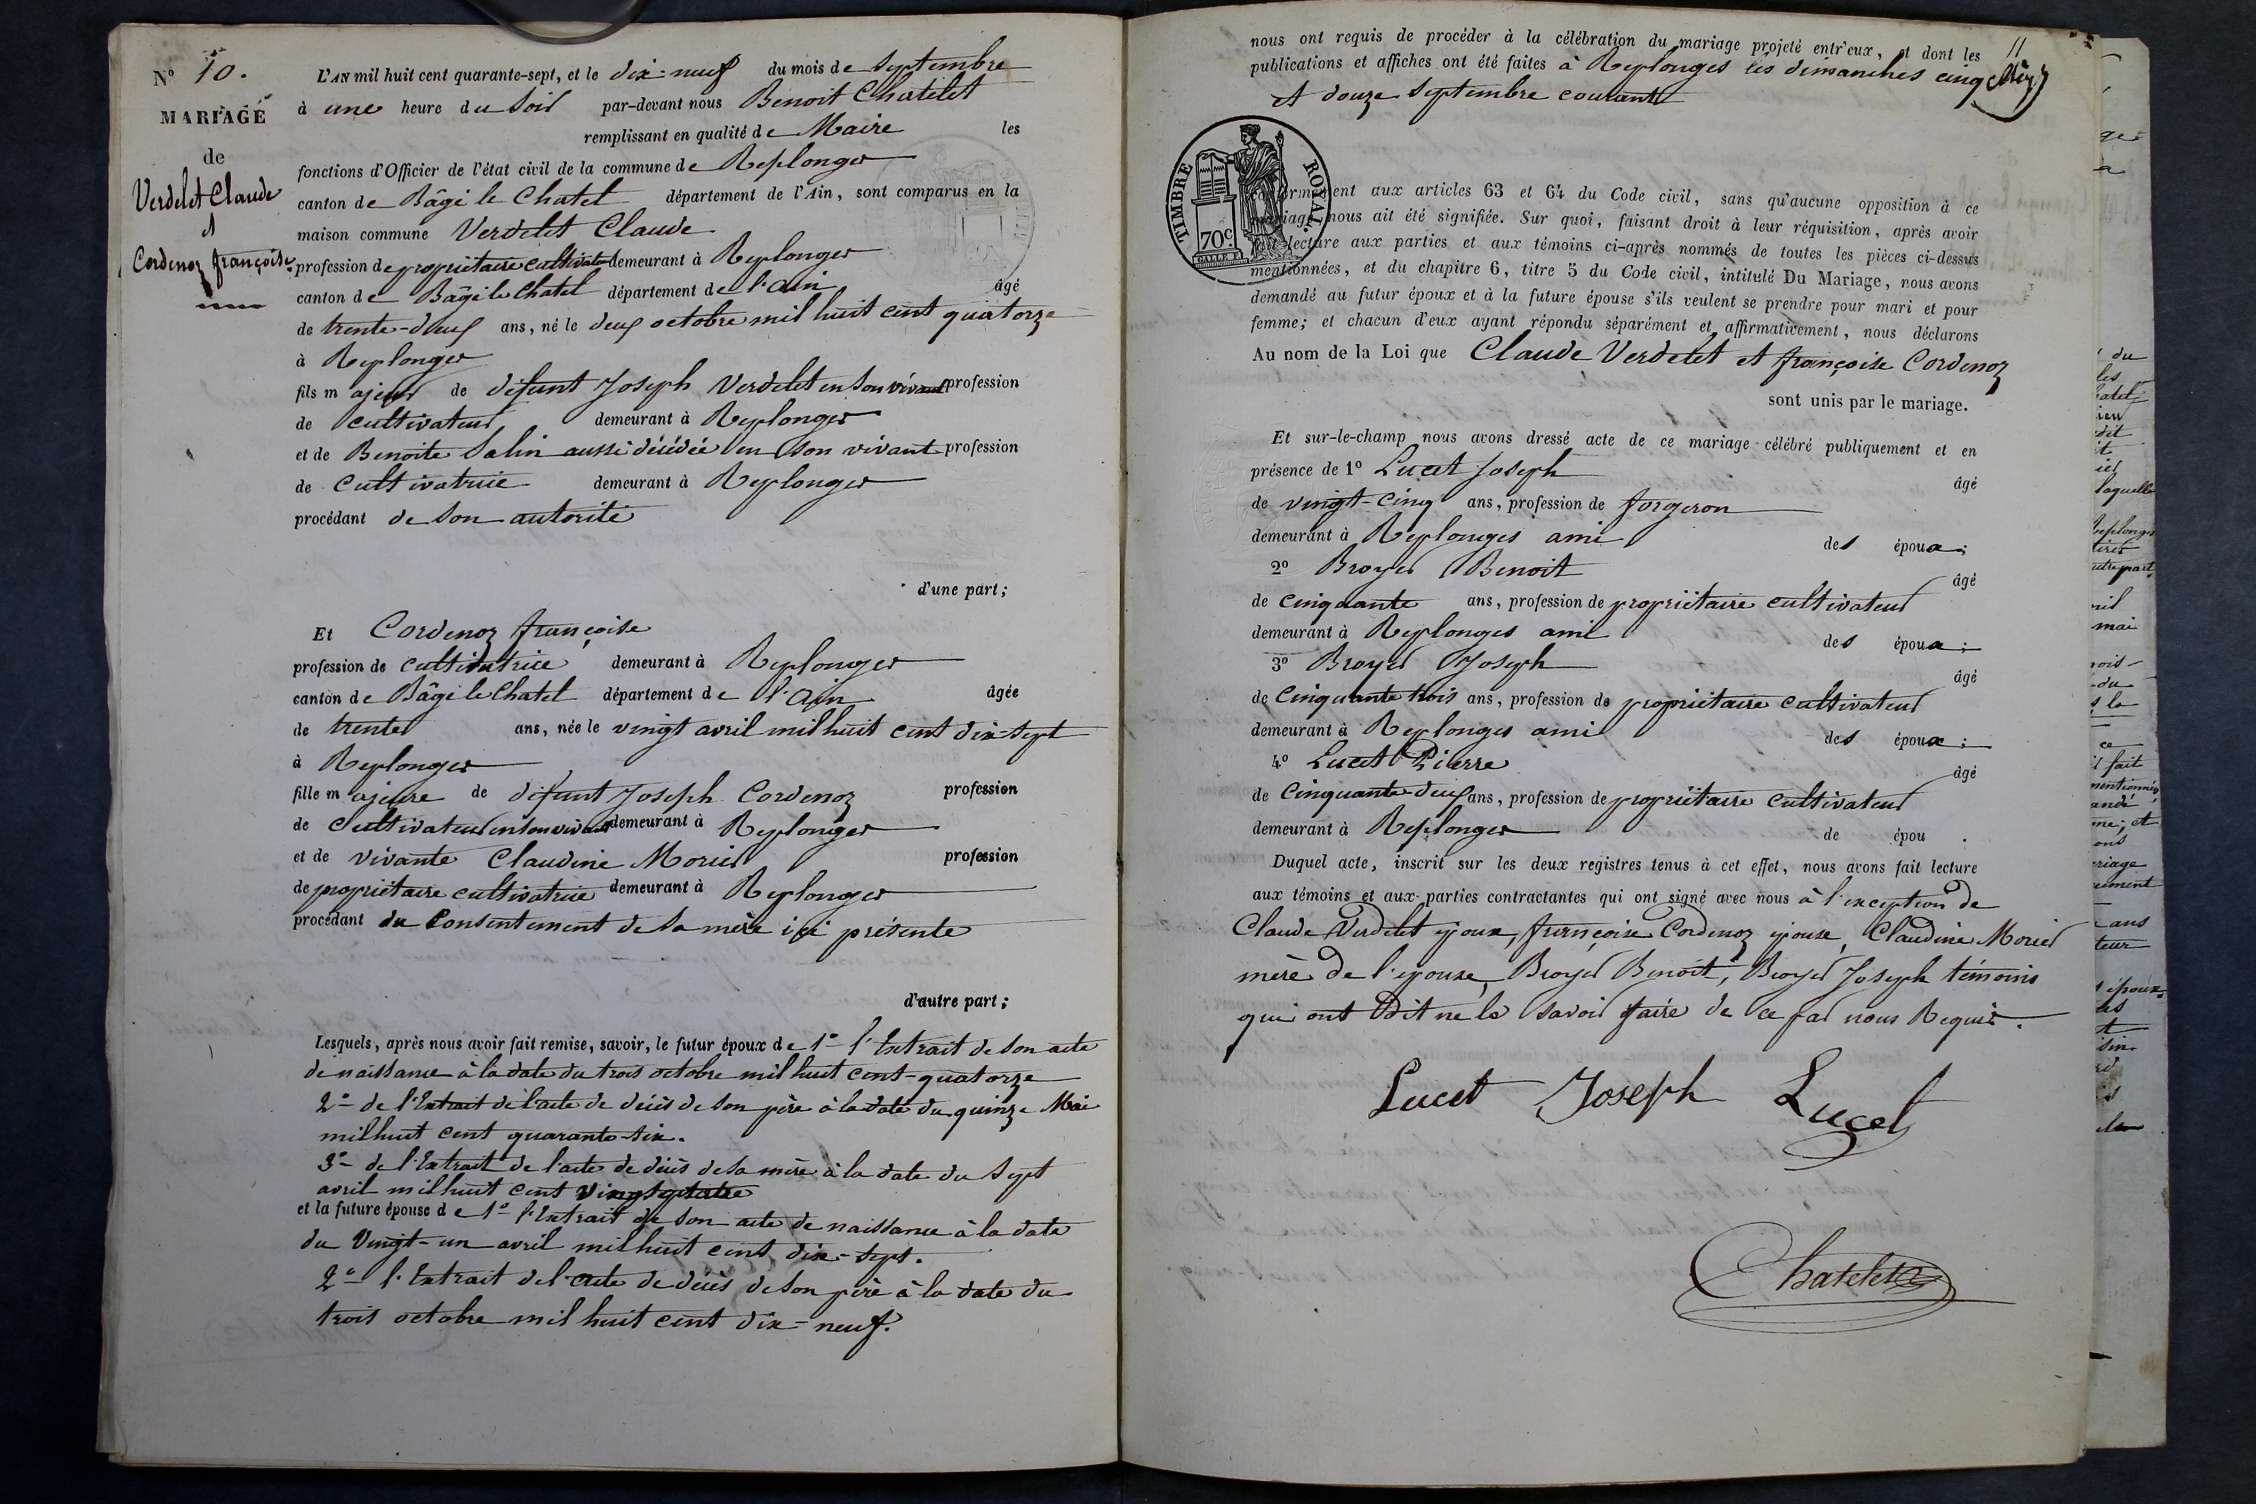 N° 10.
MARIAGE
de
Verdelet Claude
et
Cordenoz françoise
L'AN mil huit cent quarante-sept, et le dix-neuf du mois de Septembre
à une heure du Soir par-devant nous Benoit Chatelet
remplissant en qualité de Maire les
fonctions d'Officier de l'état civil de la commune de Replonges
canton de Bâgé le Chatel département de l'Ain, sont comparus en la
maison commune Verdelet Claude
profession de propriétaire cultivateur demeurant à Replonges
canton de Bâgé le Chatel département de l'Ain âgé
de trente-deux ans, né le deux octobre mil huit cent quatorze
à Replonges
fils majeur de défunt Joseph Verdelet en son vivant profession
de cultivateur demeurant à Replonges
et de Benoite Salin aussi décédée en son vivant profession
de cultivatrice demeurant à Replonges
procédant de son autorité
d'une part;
Et Cordenoz françoise
profession de cultivatrice demeurant à Replonges
canton de Bâgé le Chatel département de l'Ain âgée
de trente ans, née le vingt avril mil huit cent dix-sept
à Replonges
fille majeure de défunt Joseph Cordenoz profession
de Cultivateur en son vivant demeurant à Replonges
et de vivante Claudine Morier profession
de propriétaire cultivatrice demeurant à Replonges
procédant du Consentement de Sa mère ici présente
d'autre part;
Lesquels, après nous avoir fait remise, savoir, le futur époux de 1° l'Extrait de son acte
de naissance à la date du trois octobre mil huit cent-quatorze
2° de l'Extrait de l'acte de décès de son père à la date du quinze Mai
mil huit cent quarante-six.
3° de l'Extrait de l'acte de décès de sa mère à la date du Sept
avril mil huit cent
et la future épouse de 1° l'Extrait de son acte de naissance à la date
du Vingt-un avril mil huit cent dix-sept.
2° l'Extrait de l'acte de décès de son père à la date du
trois octobre mil huit cent dix-neuf.
11
nous ont requis de procéder à la célébration du mariage projeté entr'eux, et dont les
publications et affiches ont été faites à Replonges les dimanches cinq
et douze Septembre courant
TIMBRE ROYAL.
70c.
conformément aux articles 63 et 64 du Code civil, sans qu'aucune opposition à ce
mariage nous ait été signifiée. Sur quoi, faisant droit à leur réquisition, après avoir
fait lecture aux parties et aux témoins ci-après nommés de toutes les pièces ci-dessus
mentionnées, et du chapitre 6, titre 5 du Code civil, intitulé Du Mariage, nous avons
demandé au futur époux et à la future épouse s'ils veulent se prendre pour mari et pour
femme; et chacun d'eux ayant répondu séparément et affirmativement, nous déclarons
Au nom de la Loi que Claude Verdelet et françoise Cordenoz
sont unis par le mariage.
Et sur-le-champ nous avons dressé acte de ce mariage célébré publiquement et en
présence de 1° Lucet Joseph âgé
de vingt-cinq ans, profession de forgeron
demeurant à Replonges ami des époux;
2° Broyer Benoit âgé
de cinquante ans, profession de propriétaire cultivateur
demeurant à Replonges ami des époux;
3° Broyer Joseph âgé
de cinquante trois ans, profession de propriétaire cultivateur
demeurant à Replonges ami des époux;
4° Lucet Pierre âgé
de Cinquante-deux ans, profession de propriétaire cultivateur
demeurant à Replonges de épou .
Duquel acte, inscrit sur les deux registres tenus à cet effet, nous avons fait lecture
aux témoins et aux parties contractantes qui ont signé avec nous à l'exception de
Claude Verdelet époux, françoise Cordenoz épouse, Claudine Morier
mère de l'épouse, Broyer Benoit, Broyer Joseph témoins
qui ont Dit ne le savoir faire de ce par nous Requis.
Lucet Joseph Lucet
Chatelet